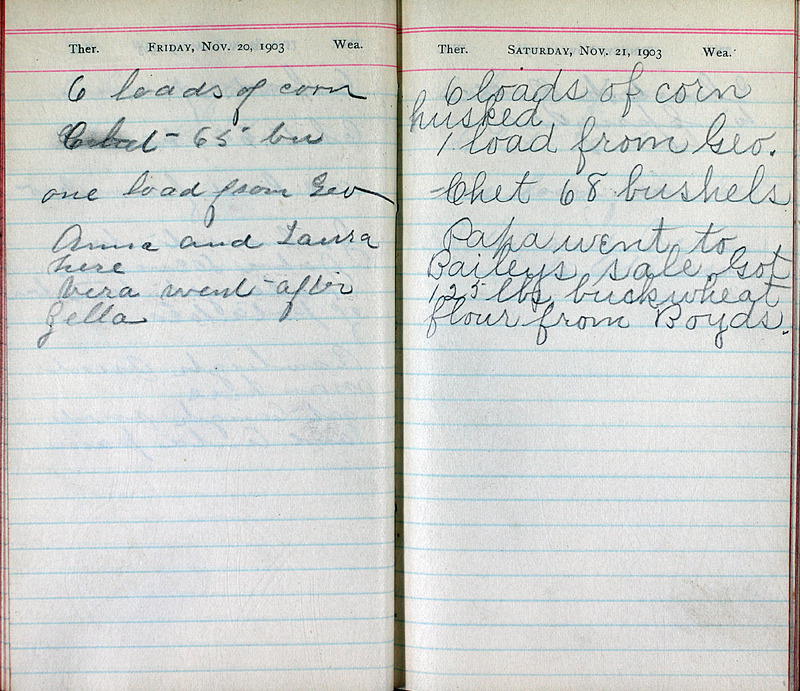 Ther. FRIDAY, NOV. 20, 1903 Wea.
6 loads of corn
Chet - 65 bu
one load from Geo
Anna and Laura
here
Vera went after
Zella
Ther. SATURDAY, NOV. 21, 1903 Wea.
6 loads of corn
husked
1 load from Geo.
Chet 68 bushels
Papa went to
Baileys sale. Got
125 lbs buckwheat
flour from Boyds.